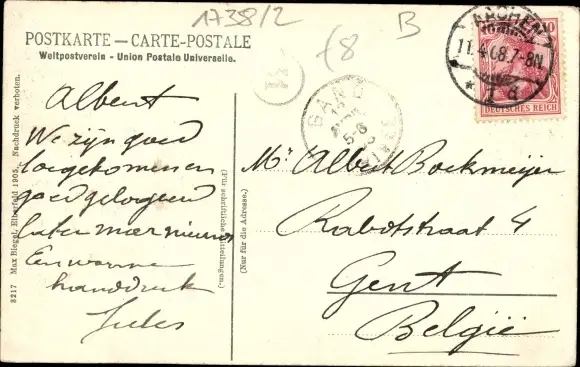 1738/2
8
B
POSTKARTE — CARTE-POSTALE
Weltpostverein - Union Postale Universelle.
AACHEN
11.4.08.7-8N.
* 1 a
10
DEUTSCHES REICH
GAND
5-6
Albert
We zijn goed
toegekomen en
goed gelogeerd
later meer nieuws
Een warme
handdruk
Jules
Mr Albert Boekmeijer
Rabotstraat 4
Gent
België
(Für schriftliche Mitteilungen.)
(Nur für die Adresse.)
8217 Max Biegel, Elberfeld 1905. Nachdruck verboten.